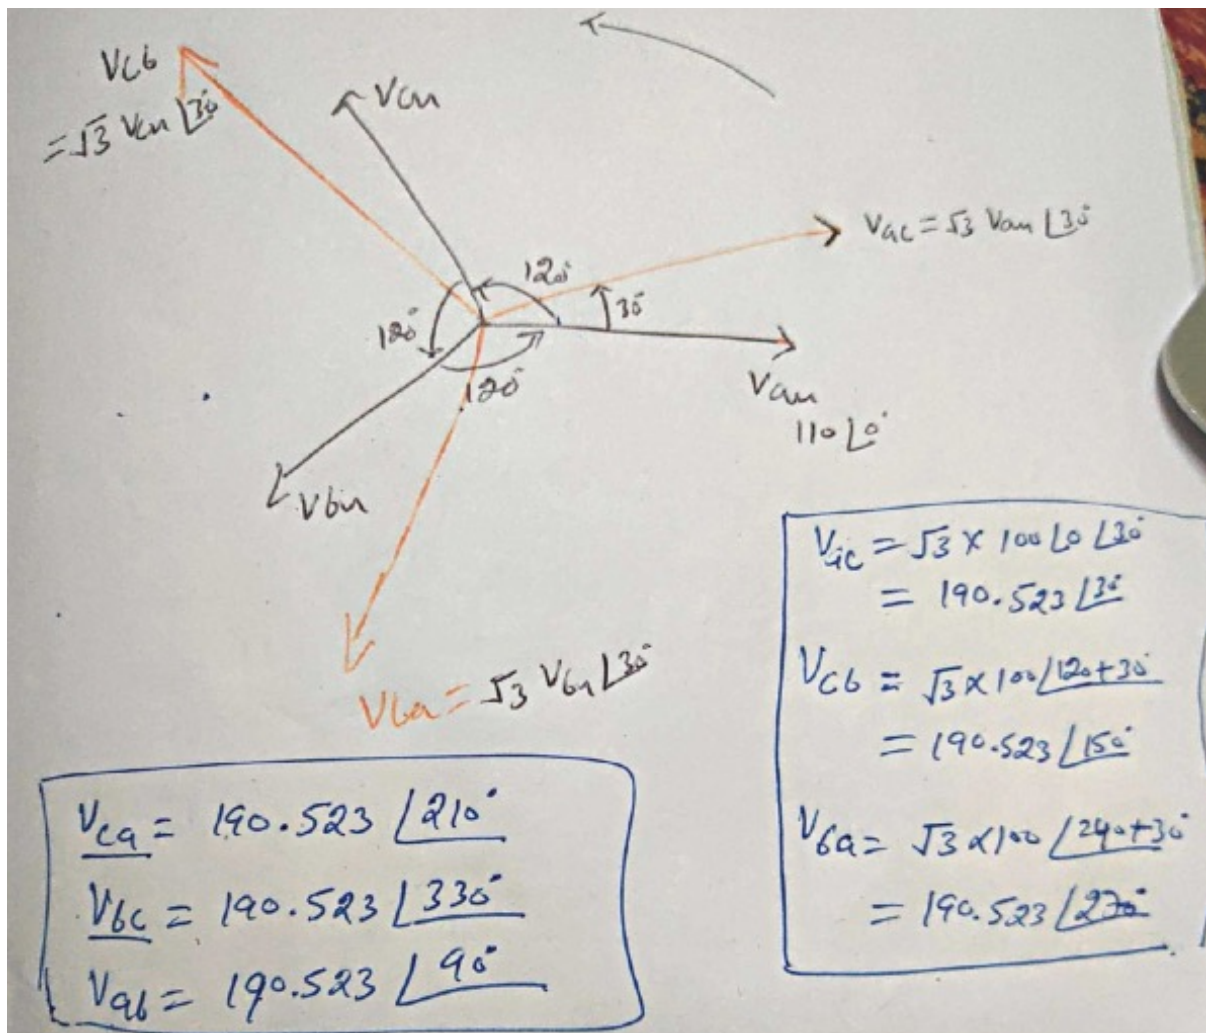 Vcb
= √3 Vcn ∠30°
Vcn
Vac = √3 Van ∠30°
120°
30°
120°
120°
Van
110 ∠0°
Vbn
Vba = √3 Vbn ∠30°
Vac = √3 × 100 ∠0 ∠30°
= 190.523 ∠30°
Vcb = √3 × 100 ∠120+30°
= 190.523 ∠150°
Vba = √3 × 100 ∠240+30°
= 190.523 ∠270°
Vca = 190.523 ∠210°
Vbc = 190.523 ∠330°
Vab = 190.523 ∠90°